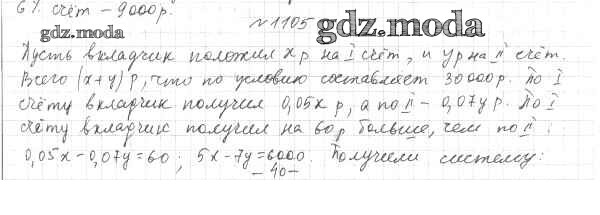 6% счёт – 9000 р.
№1105
gdz.moda
gdz.moda
Пусть вкладчик положил x р на I счёт, и y р на II счёт.
Всего (x+y) р, что по условию составляет 30000 р. По I
счёту вкладчик получил 0,05x р, а по II – 0,07y р. По I
счёту вкладчик получил на 60 р больше, чем по II :
0,05x – 0,07y = 60 ; 5x – 7y = 6000. Получили систему:
– 40 –